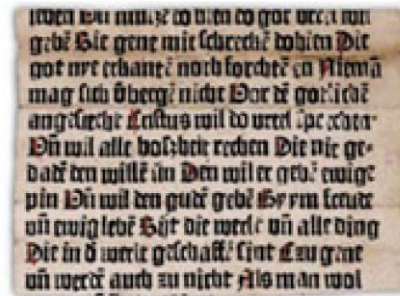 leben Vñ musze do hien do got orteil wil
gebē Sie gene mit schreckē dohien Die
got nye erkantē noch forchtē en Niemā
mag sich ůbergē nicht Vor dē gotlichē
angesiecht Cristus wil do urteil sprechen
Vñ wil alle boszheit rechen Die nie ge-
dadē den willē sin Den wil er gebē ewige
pin Vñ wil den gudē gebē By ym freude
vñ ewig lebē Sijt die werlt vñ alle ding
Die in d' werlt geschaffē sint Czu gene
vñ werdē auch zu nicht Als man wol